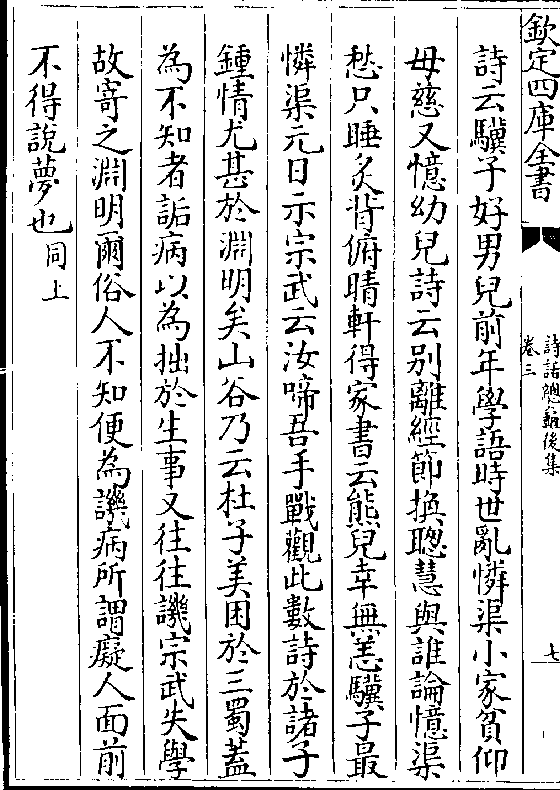 欽定四庫全書
詩話總龜後集
卷三
七
詩云驥子好男兒前年學語時世亂憐渠小家貧仰
母慈又憶幼兒詩云别離經節換聰慧與誰論憶渠
愁只睡炙背俯晴軒得家書云熊兒幸無恙驥子最
憐渠元日示宗武云汝啼吾手戰觀此數詩於諸子
鍾情尤甚於淵明矣山谷乃云杜子美困於三蜀蓋
為不知者詬病以為拙於生事又往往譏宗武失學
故寄之淵明爾俗人不知便為譏病所謂癡人面前
不得説夢也同上